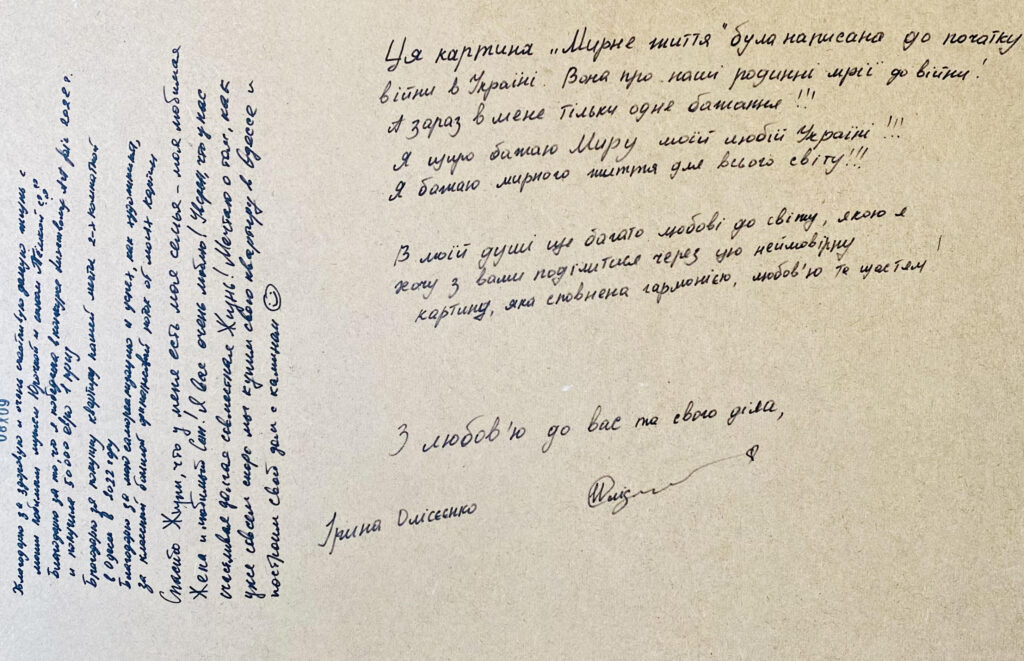 Ця картина „Мирне життя" була написана до початку
війни в Україні. Вона про наші родинні мрії до війни!
А зараз в мене тільки одне бажання!!!
Я щиро бажаю Миру моїй любій Україні!!!
Я бажаю мирного життя для всього світу!!!
В моїй душі ще багато любові до світу, якою я
хочу з вами поділитися через цю неймовірну
картину, яка сповнена гармонією, любов'ю та щастям
З любов'ю до вас та свого діла,
Ірина Олісєєнко
Спасибо Жизни, что у меня есть моя семья – моя любимая
Жена и любимый Сын! Я Вас очень люблю! Уверен, что у нас
счастливая долгая совместная Жизнь! Мечтаю о том, как
уже совсем скоро мы купим свою квартиру в Одессе и
построим свой дом с камином
Благодарю за здоровую и очень счастливую жизнь с
моим любимым мужем и сыном
Благодарю за то, что я победила в конкурсе 2022 г.
и получила 50 000 евро
Благодарю за покупку квартиры нашей мечты 2-х комнатной
в Одессе в 2022 году
Благодарю за мою самореализацию и успех, как художника,
за классный большой денежный поток от моих картин
08.109